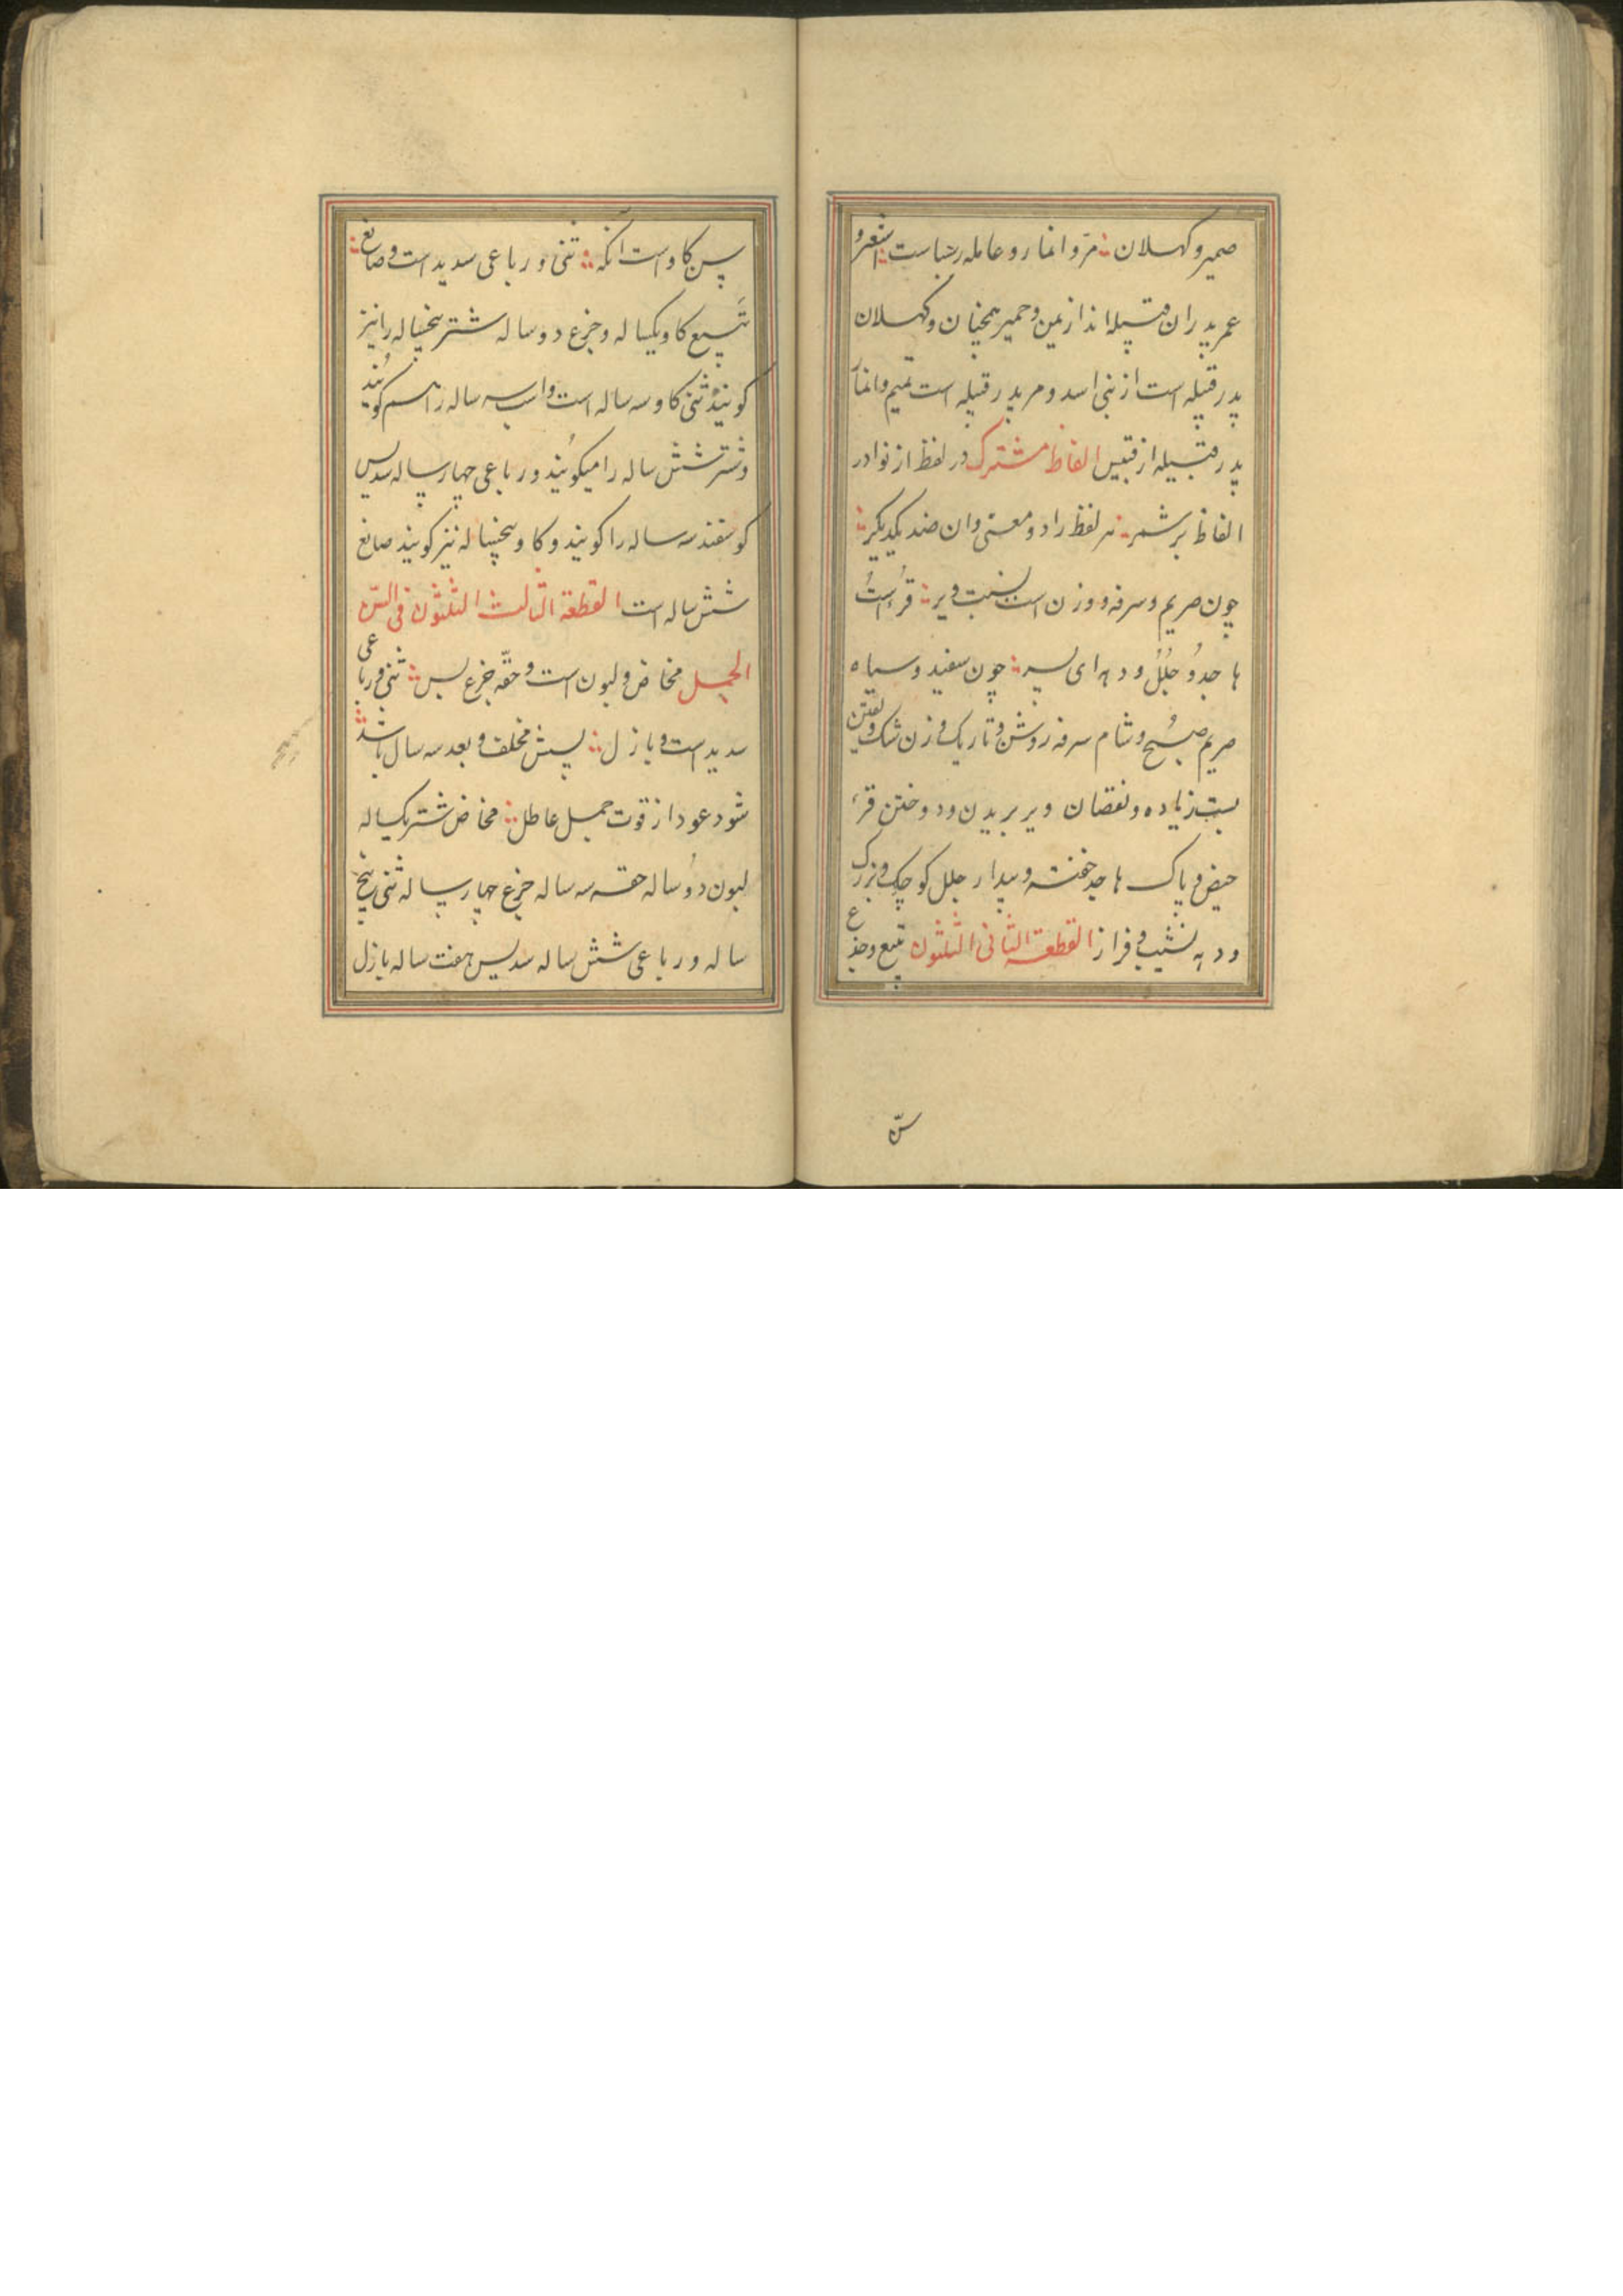 حمیر و کهلان ؞ مرّ و انمار و عامله رسباست ؞ اشعر و
عمر پدران قبیله اند از یمن و حمیر همچنان و کهلان
پدر قبیله است از بنی اسد و مر پدر قبیله است تمیم و انمار
پدر قبیله از قیس الفاظ مشترک در لفظ از نوادر
الفاظ بر شمر ؞ هر لفظ را دو معنی و ان ضد یکدیکر ؞
چون صریم و سرفه و و زن است بسبت و یر ؞ قرء است
ها جد و جلل و دهه ای پسر ؞ چون سفید و سیاه
صریم صبح و شام سرفه روشن و تاریک و زن شک و یقین
بسبت زیاده و نقصان و یر بریدن و دوختن قرء
حیض و پاک ها جد خفته و بیدار جلل کوچک و بزرک
و دهه نشیب و فراز القطعة الثانی الثلثون تبیع و جذع
سنّ
پس کاو است آنکه ؞ ثنی و رباعی سدید است و صالغ ؞
تَبیع کاو یکساله و جزع دو ساله شتر پنجساله را نیز
کویند ثنی کاو سه ساله است و اسب سه ساله را هم کویند
و شتر شش ساله را میکویند و رباعی چهار ساله سدیس
کوسفند سه ساله را کویند و کاو پنجساله نیز کویند صالغ
شش ساله است القطعة الثالث الثلثون فی السنّ
الجمل مخاض و لبون است و حقّه جزع پس ؞ ثنی و رباعی
سدید است و بازل ؞ پسش مخلف و بعد سه سال باشد ؞
شود عود از قوت جمل عاطل ؞ مخاض شتر یکساله
لبون دو ساله حقه سه ساله جزع چهار ساله ثنی پنج
ساله و رباعی شش ساله سدیس هفت ساله بازل